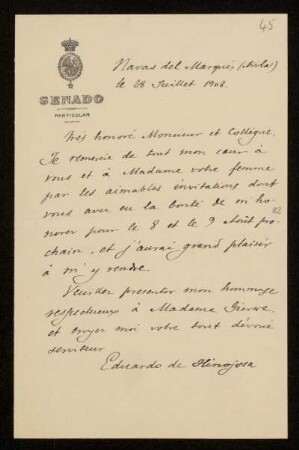 45
Navas del Marqués (Avila)
le 28 Juillet 1908.
SENADO
PARTICULAR
Très honoré Monsieur et Collègue.
Je remercie de tout mon cœur à
vous et à Madame votre femme
par les aimables invitations dont
vous avez eu la bonté de m'ho
norer pour le 8 et le 9 Août pro
chain, et j'aurai grand plaisir
à m'y rendre.
Veuillez presenter mon hommage
respectueux à Madame Gierke
et croyez moi votre tout dévoué
serviteur
Eduardo de Hinojosa